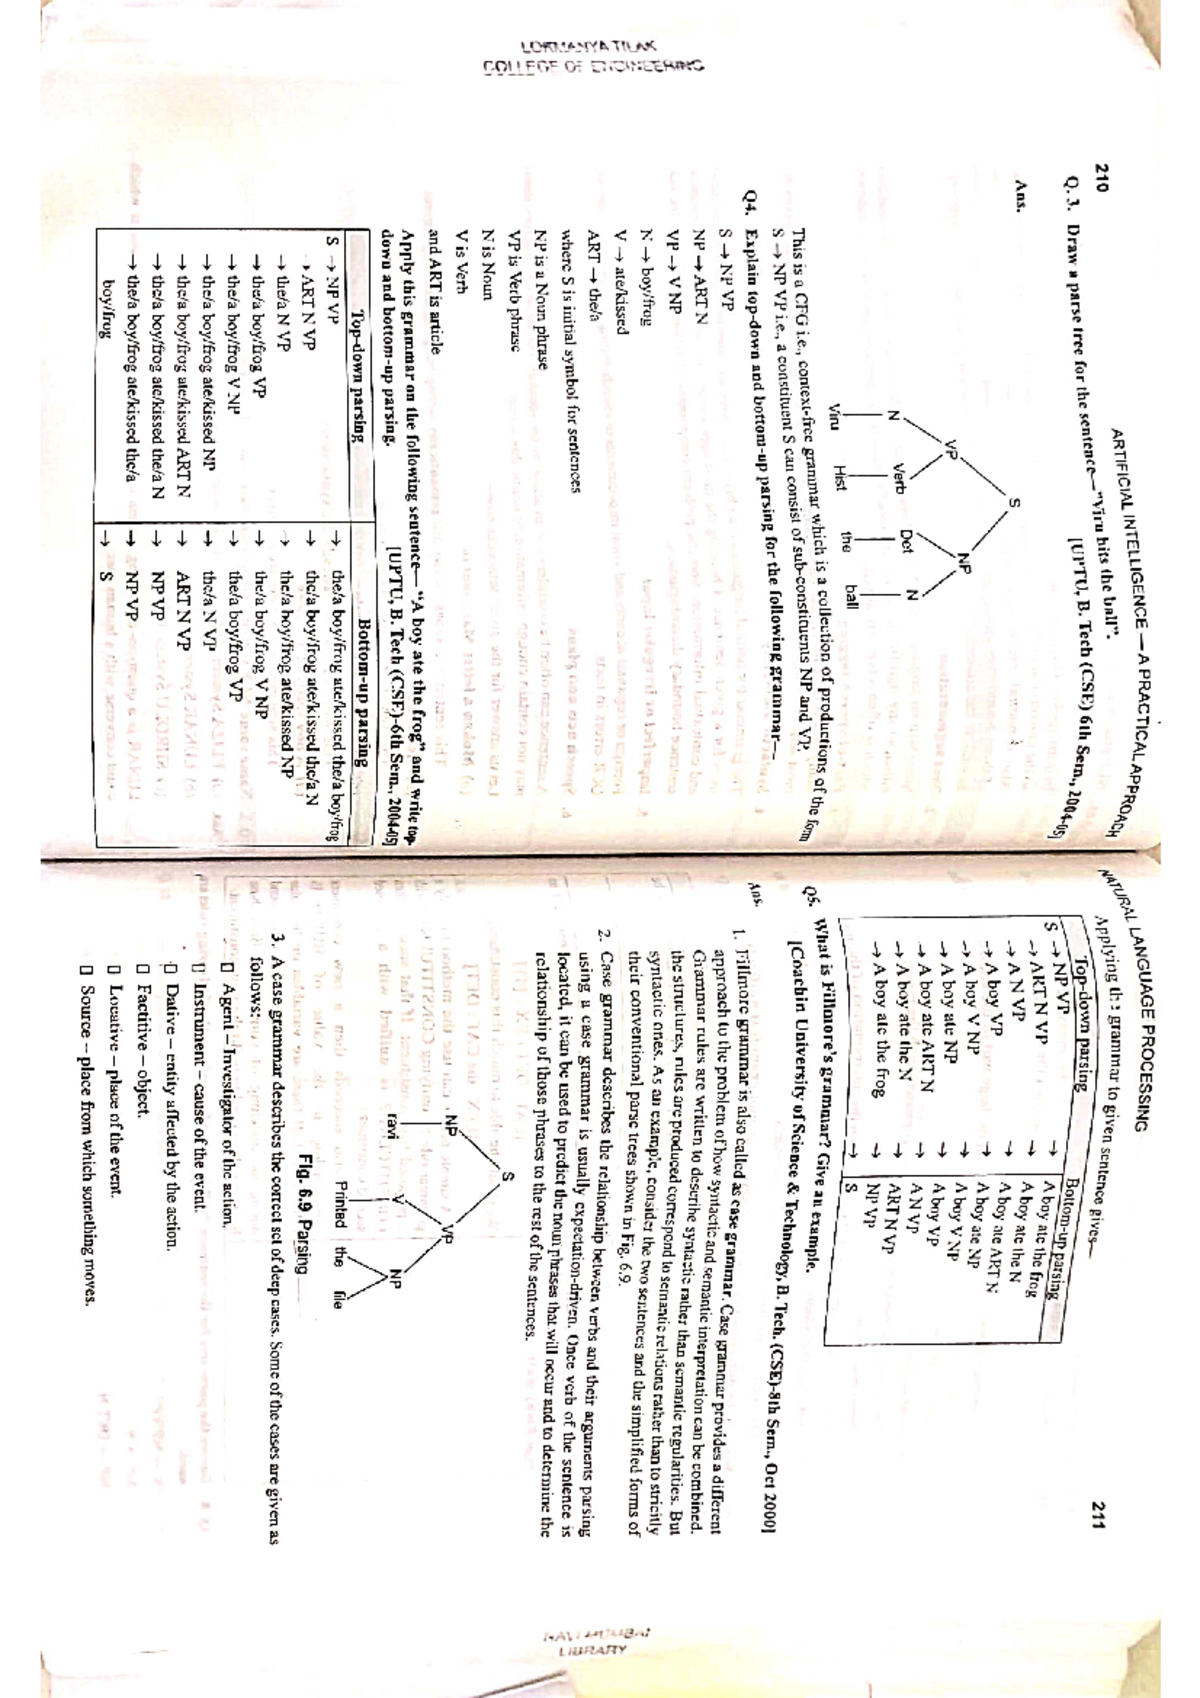 LOKMANYA TILAK
COLLEGE OF ENGINEERING
210
ARTIFICIAL INTELLIGENCE — A PRACTICAL APPROACH
Q. 3. Draw a parse tree for the sentence—"Viru hits the ball".
[UPTU, B. Tech (CSE) 6th Sem., 2004-05]
Ans.
S
VP NP
N Verb Det N
Viru Hist the ball
This is a CFG i.e., context-free grammar which is a collection of productions of the form
S → NP VP i.e., a constituent S can consist of sub-constituents NP and VP.
Q4. Explain top-down and bottom-up parsing for the following grammar—
S → NP VP
NP → ART N
VP → V NP
N → boy/frog
V → ate/kissed
ART → the/a
where S is initial symbol for sentences
NP is a Noun phrase
VP is Verb phrase
N is Noun
V is Verb
and ART is article
Apply this grammar on the following sentence— "A boy ate the frog" and write top-
down and bottom-up parsing. [UPTU, B. Tech (CSE)-6th Sem., 2004-05]
Top-down parsing Bottom-up parsing
S → NP VP → the/a boy/frog ate/kissed the/a boy/frog
→ ART N VP → the/a boy/frog ate/kissed the/a N
→ the/a N VP → the/a boy/frog ate/kissed NP
→ the/a boy/frog VP → the/a boy/frog V NP
→ the/a boy/frog V NP → the/a boy/frog VP
→ the/a boy/frog ate/kissed NP → the/a N VP
→ the/a boy/frog ate/kissed ART N → ART N VP
→ the/a boy/frog ate/kissed the/a N → NP VP
→ the/a boy/frog ate/kissed the/a → NP VP
boy/frog → S
NATURAL LANGUAGE PROCESSING
211
Applying the grammar to given sentence gives—
Top-down parsing Bottom-up parsing
S → NP VP → A boy ate the frog
→ ART N VP → A boy ate the N
→ A N VP → A boy ate ART N
→ A boy VP → A boy ate NP
→ A boy V NP → A boy V NP
→ A boy ate NP → A boy VP
→ A boy ate ART N → A N VP
→ A boy ate the N → ART N VP
→ A boy ate the frog → NP VP
→ S
Q5. What is Fillmore's grammar? Give an example.
[Coachin University of Science & Technology, B. Tech. (CSE)-8th Sem., Oct 2000]
Ans.
1. Fillmore grammar is also called as case grammar. Case grammar provides a different
approach to the problem of how syntactic and semantic interpretation can be combined.
Grammar rules are written to describe syntactic rather than semantic regularities. But
the structures, rules are produced correspond to semantic relations rather than to strictly
syntactic ones. As an example, consider the two sentences and the simplified forms of
their conventional parse trees shown in Fig. 6.9.
2. Case grammar describes the relationship between verbs and their arguments parsing
using a case grammar is usually expectation-driven. Once verb of the sentence is
located, it can be used to predict the noun phrases that will occur and to determine the
relationship of those phrases to the rest of the sentences.
S
NP VP
V NP
ravi Printed the file
Fig. 6.9 Parsing
3. A case grammar describes the correct set of deep cases. Some of the cases are given as
follows:
Agent – Investigator of the action.
Instrument – cause of the event.
Dative – entity affected by the action.
Factitive – object.
Locative – place of the event.
Source – place from which something moves.
NAVI MUMBAI
LIBRARY